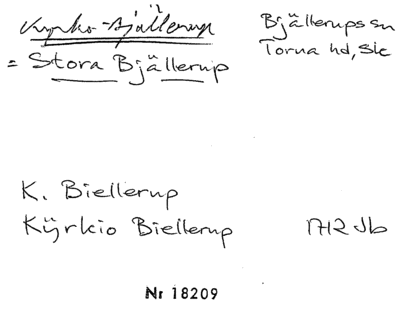 Kyrko-Bjällerup
= Stora Bjällerup
Bjällerups sn
Torna hd, Sk
K. Biellerup
Kÿrkio Biellerup 1712 Jb
Nr 18209